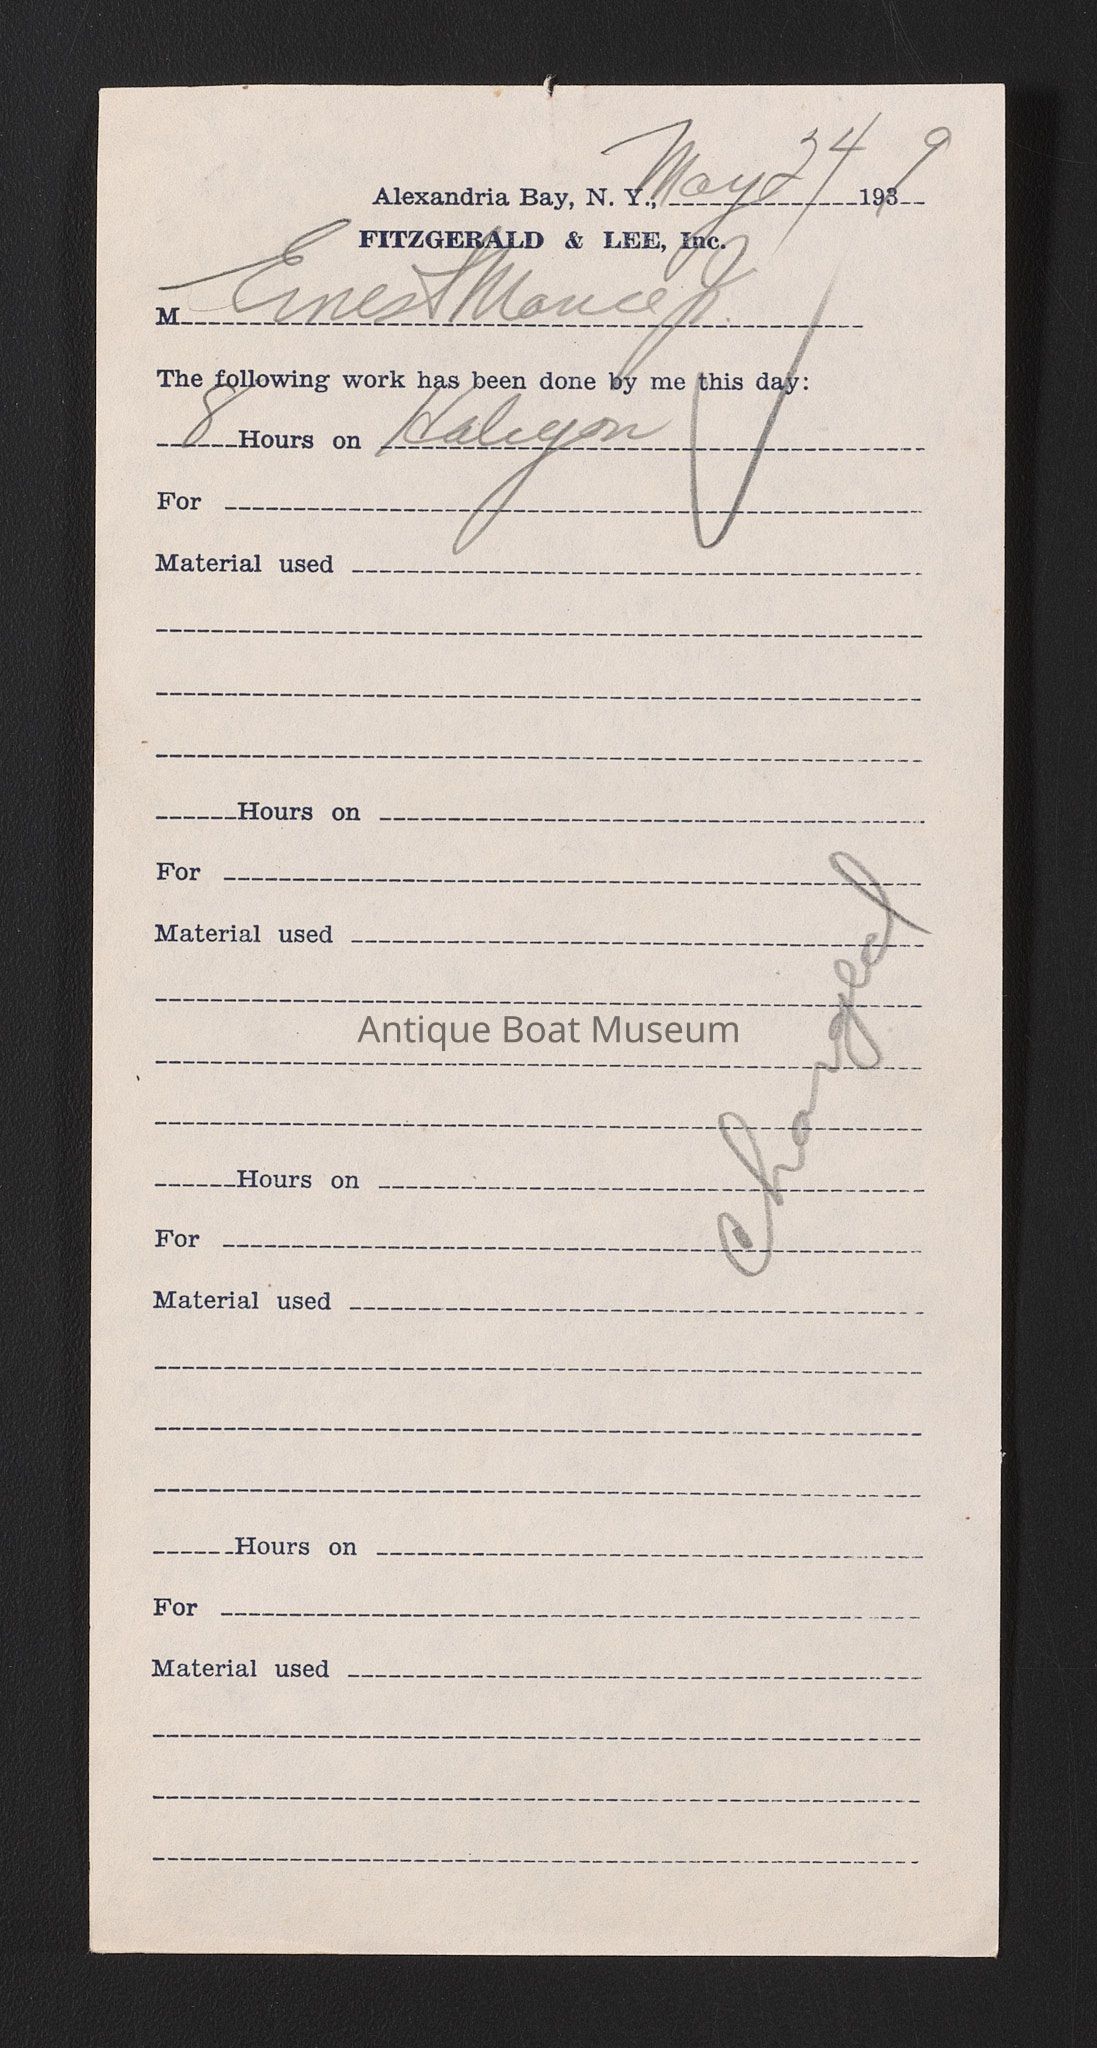 Alexandria Bay, N. Y., May 24 1939
FITZGERALD & LEE, Inc.
M Ernest Mance Jr.
The following work has been done by me this day:
8 Hours on Halcyon
For
Material used
Hours on
For
Material used
Antique Boat Museum
Charged
Hours on
For
Material used
Hours on
For
Material used